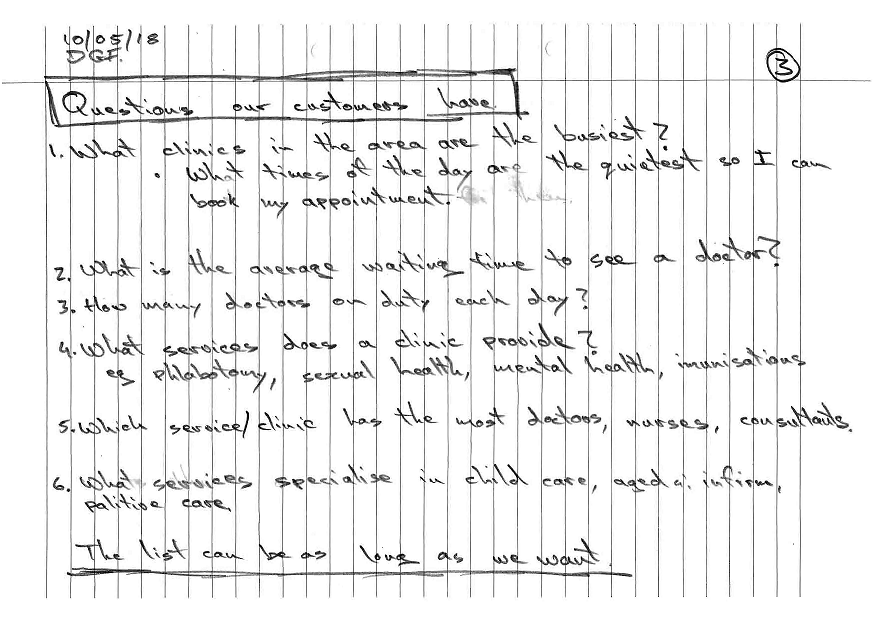 10/05/18
DGF.
3
Questions our customers have.
1. What clinics in the area are the busiest?
• What times of the day are the quietest so I can
book my appointment.
2. What is the average waiting time to see a doctor?
3. How many doctors on duty each day?
4. What services does a clinic provide?
eg phlabotomy, sexual health, mental health, imunisations
5. Which service/clinic has the most doctors, nurses, consultants.
6. What services specialise in child care, aged infirm,
palitive care,
The list can be as long as we want.